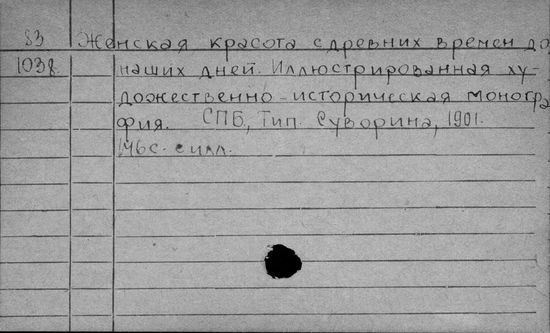 83 Женская красота с древних времен до
103г. наших дней. Иллюстрированная ху-
дожественно-историческая моногра
фия. СПБ, Тип. Суворина, 1901.
146с. с илл.